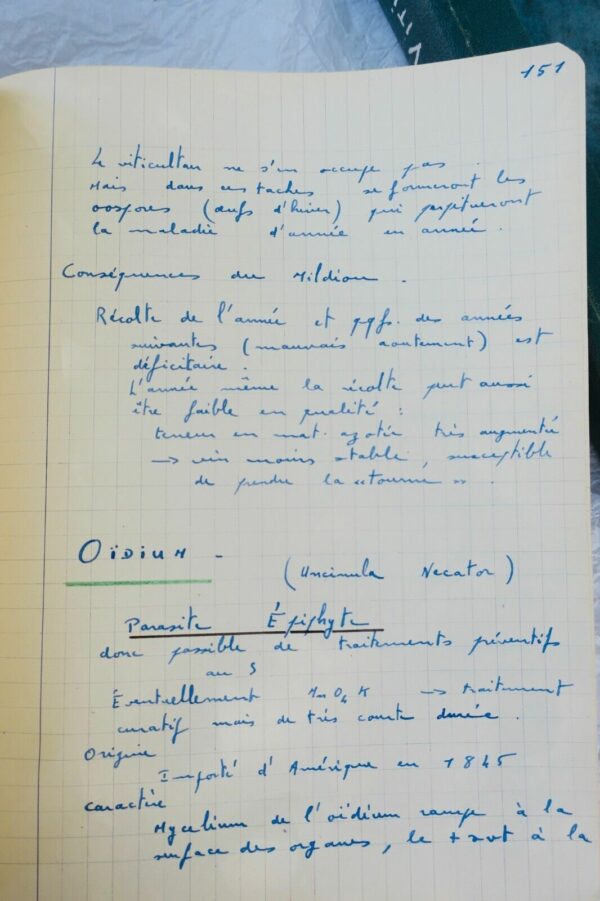 VITI
151
Le viticulteur ne s'en occupe pas.
Mais dans ces taches se formeront les
oospores (œufs d'hiver) qui perpétueront
la maladie d'année en année.
Conséquences du Mildiou.
Récolte de l'année et qqfs. des années
suivantes (mauvais aoutement) est
déficitaire.
L'année même la récolte peut aussi
être faible en qualité :
teneur en mat. azotée très augmentée
→ vin moins stable, susceptible
de prendre la « tourne ».
OÏDIUM -
(Uncinula Necator)
Parasite Épiphyte
donc possible de traitements préventifs
au S
Éventuellement MnO4K → traitement
curatif mais de très courte durée.
Origine
Importé d'Amérique en 1845
Caractère
Mycelium de l'oïdium rampe à la
surface des organes, le + svt à la